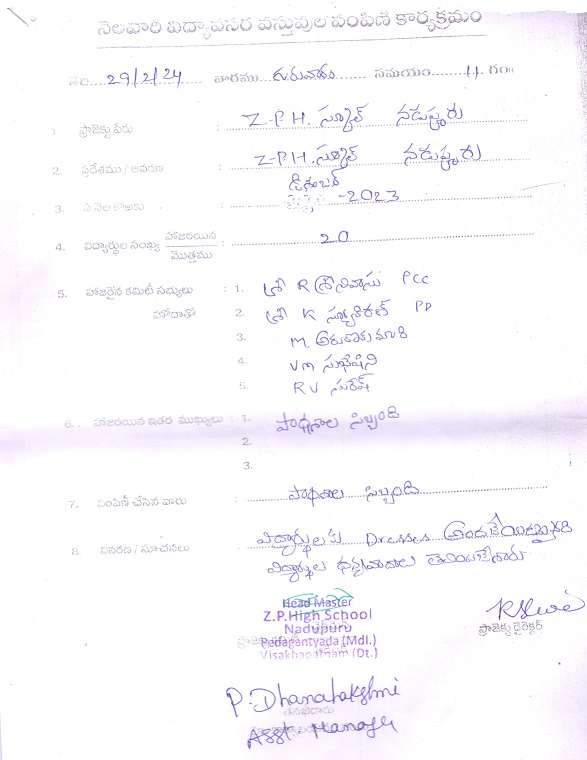 నెలవారీ విద్యావసర వస్తువుల పంపిణీ కార్యక్రమం
తేది. 29/2/24 వారము గురువారం సమయం 11 గం॥
1 ప్రాజెక్టు పేరు : Z.P.H. స్కూల్ నడుపూరు
2. ప్రదేశము / ఆవరణ : Z.P.H. స్కూల్ నడుపూరు
3. ఏ నెల కొఱకు : డిశంబర్ -2023
4. విద్యార్థుల సంఖ్య హాజరయిన / మొత్తము : 20
5. హాజరైన కమిటీ సభ్యులు : 1. శ్రీ R శ్రీనివాసు PCC
హోదాతో 2. శ్రీ K PD
3. M. అరుణకుమారి
4. VM సుభాషిని
5. R V సురేష్
6. హాజరయిన ఇతర ముఖ్యులు : 1. పాఠశాల సిబ్బంది
2.
3.
7. పంపిణీ చేసిన వారు : పాఠశాల సిబ్బంది
8. వివరణ / సూచనలు : విద్యార్థులకు Dresses
విద్యార్థులు ధన్యవాదాలు తెలియజేశారు
Head Master
Z.P.High School
Nadupuru
Pedagantyada (Mdl.)
Visakhapatnam (Dt.)
ప్రాజెక్టు డైరెక్టర్
P. Dhanalakshmi
Asst. Manager